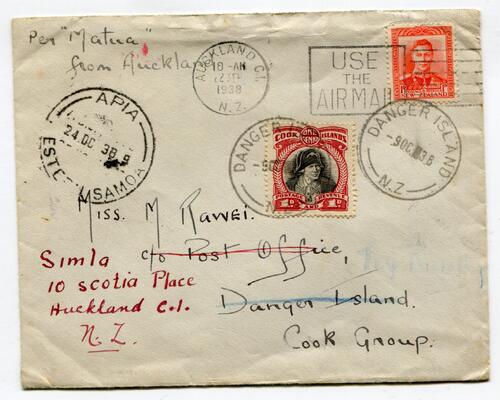 Per "Matua"
from Auckland
AUCKLAND C.1.
10-AM
1938
N.Z.
USE
THE
AIRMAIL
APIA
24.OC 38
SAMOA
DANGER ISLAND
-9 OC 38
N.Z.
DANGER
N.Z.
COOK ISLANDS
ONE PENNY
POSTAGE AND REVENUE
1D 1D
Miss. M. Rawei.
c/o Post Office,
Danger Island.
Cook Group.
Simla
10 Scotia Place
Auckland C.1.
N.Z.